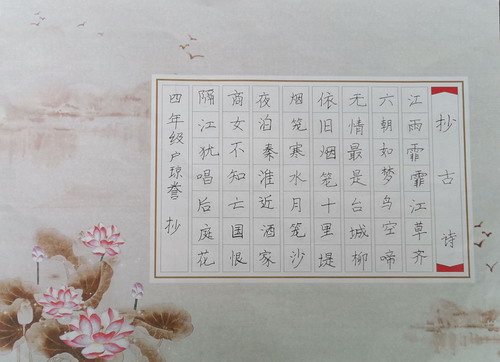 抄古诗
江雨霏霏江草齐
六朝如梦鸟空啼
无情最是台城柳
依旧烟笼十里堤
烟笼寒水月笼沙
夜泊秦淮近酒家
商女不知亡国恨
隔江犹唱后庭花
四年级卢琼誉抄